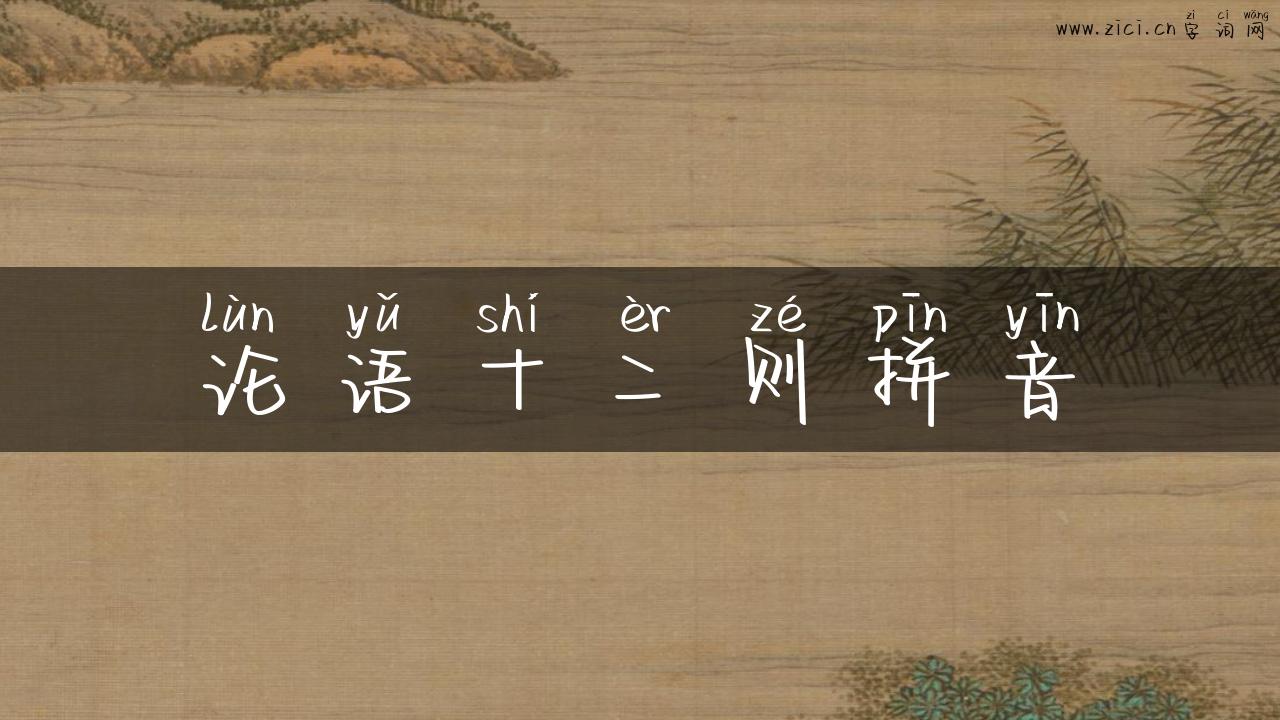 zì cí wǎng
www.zici.cn 字 词 网
lùn yǔ shí èr zé pīn yīn
论 语 十 二 则 拼 音